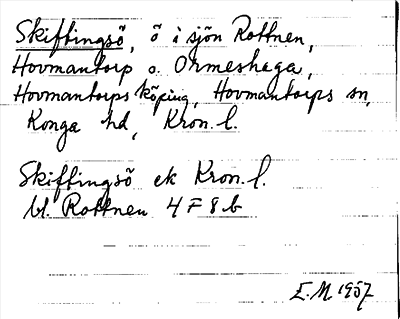 Skiftingsö, ö i sjön Rottnen,
Hovmantorp o. Ormeshaga,
Hovmantorps köping, Hovmantorps sn,
Konga hd, Kron. l.
Skiftingsö ek Kron. l.
bl. Rottnen 4 F 8 b
E.M 1957